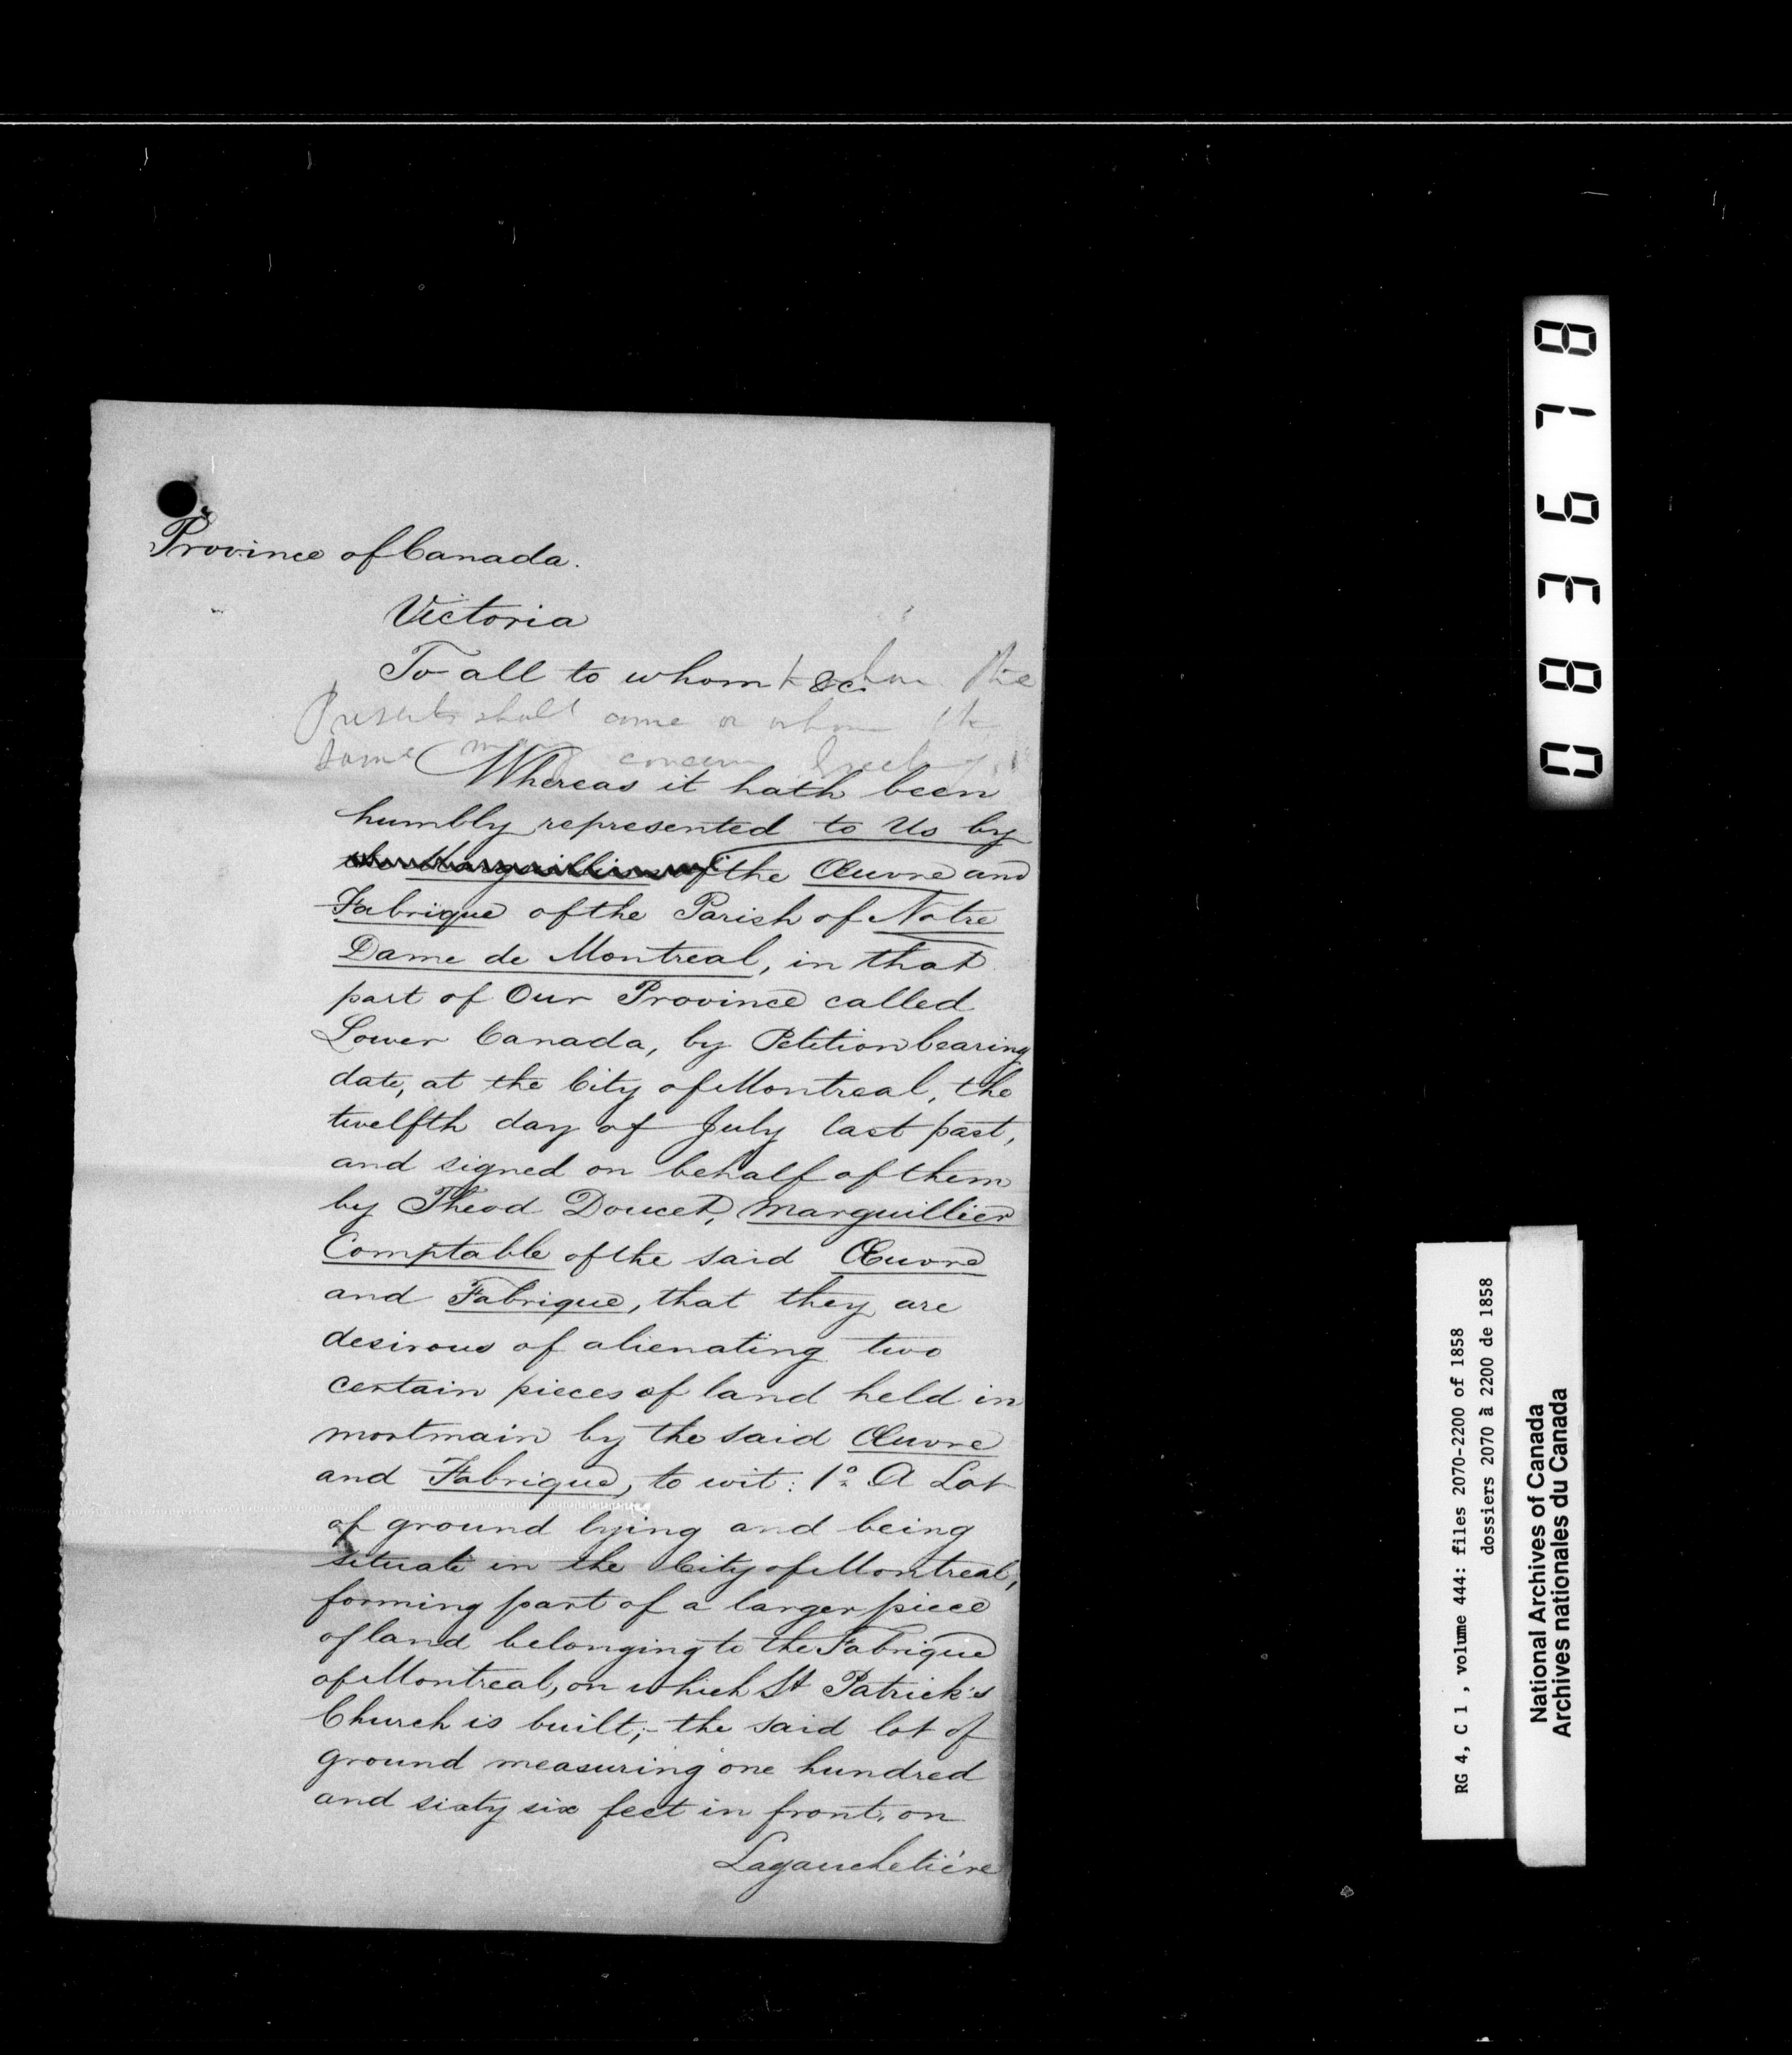 Province of Canada.
Victoria
To all to whom &c. the
Presents shall come or whom the
same may concern Greeting
Whereas it hath been
humbly represented to Us by
the Marguilliers of the Œuvre and
Fabrique of the Parish of Notre
Dame de Montreal, in that
part of Our Province called
Lower Canada, by Petition bearing
date, at the City of Montreal, the
twelfth day of July last past,
and signed on behalf of them
by Theod Doucet, Marguillier
Comptable of the said Œuvre
and Fabrique, that they are
desirous of alienating two
certain pieces of land held in
mortmain by the said Œuvre
and Fabrique, to wit: 1º A Lot
of ground lying and being
situate in the City of Montreal,
forming part of a larger piece
of land belonging to the Fabrique
of Montreal, on which St Patrick's
Church is built; - the said lot of
ground measuring one hundred
and sixty six feet in front, on
Lagauchetière
083678
RG 4, C 1 , volume 444: files 2070-2200 of 1858
dossiers 2070 à 2200 de 1858
National Archives of Canada
Archives nationales du Canada